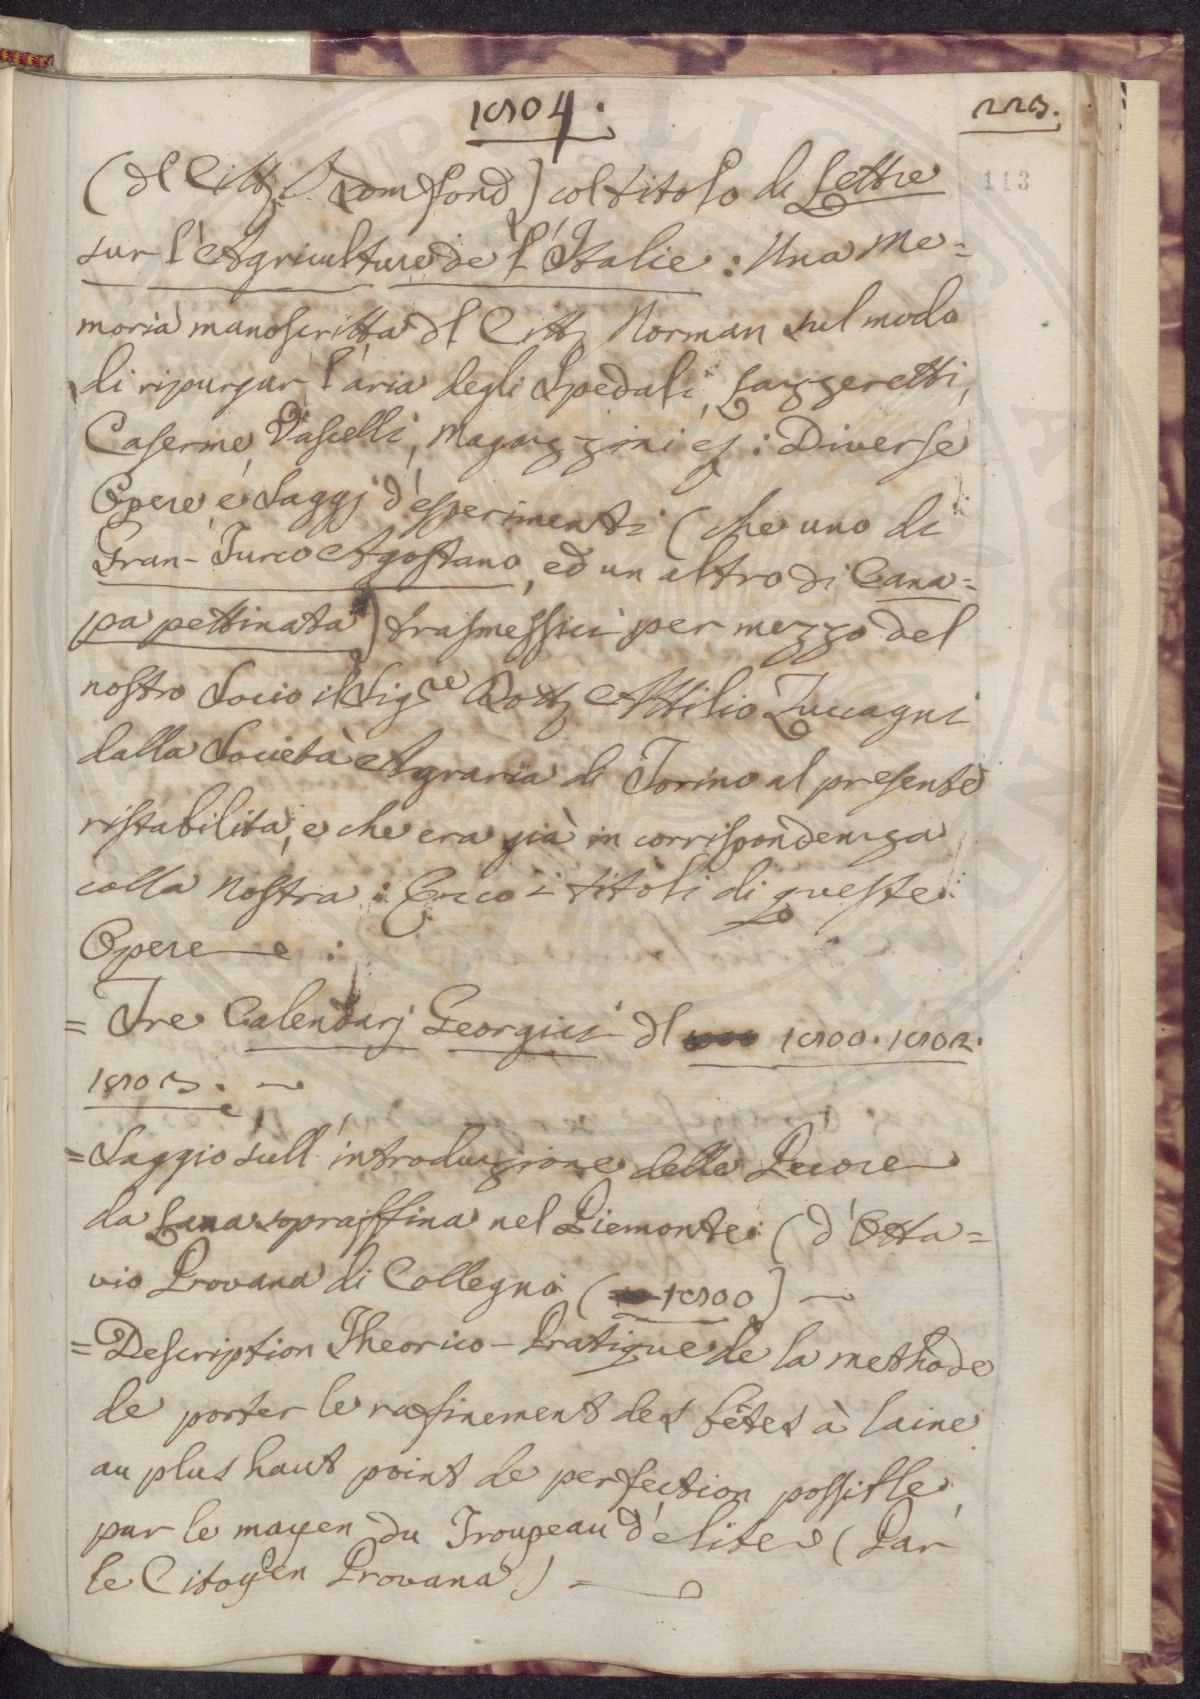 1804.
225.
113
(dl Citt. Domfond) col titolo di Lettre
sur l'Agriculture de l'Italie: Una Me=
moria manoscritta dl Citt. Norman sul modo
di ripurgar l'aria degli Spedali, Lazzeretti,
Caserme, Vascelli, Magazzini &: Diverse
Opere, e Saggj d'esperimenti (che uno di
Gran-Turco Agostano, ed un altro di Cana=
pa pettinata) trasmessici per mezzo del
nostro Socio il Sigre Dott. Attilio Zuccagni
dalla Società Agraria di Torino al presente
ristabilita, e che era già in corrispondenza
colla nostra: Ecco i titoli di queste
Opere:
= Tre Calendarj Georgici dl 1800. 1802.
1803.
= Saggio sull'introduzione delle Pecore
da Lana sopraffina nel Piemonte: (d'Otta=
vio Provana di Collegno (1800)
= Description Theorico-Pratique de la methode
de porter le rafinement des bêtes à laine
au plus haut point de perfection possible,
par le moyen du Troupeau d'elite (Par
le Citoyen Provana)